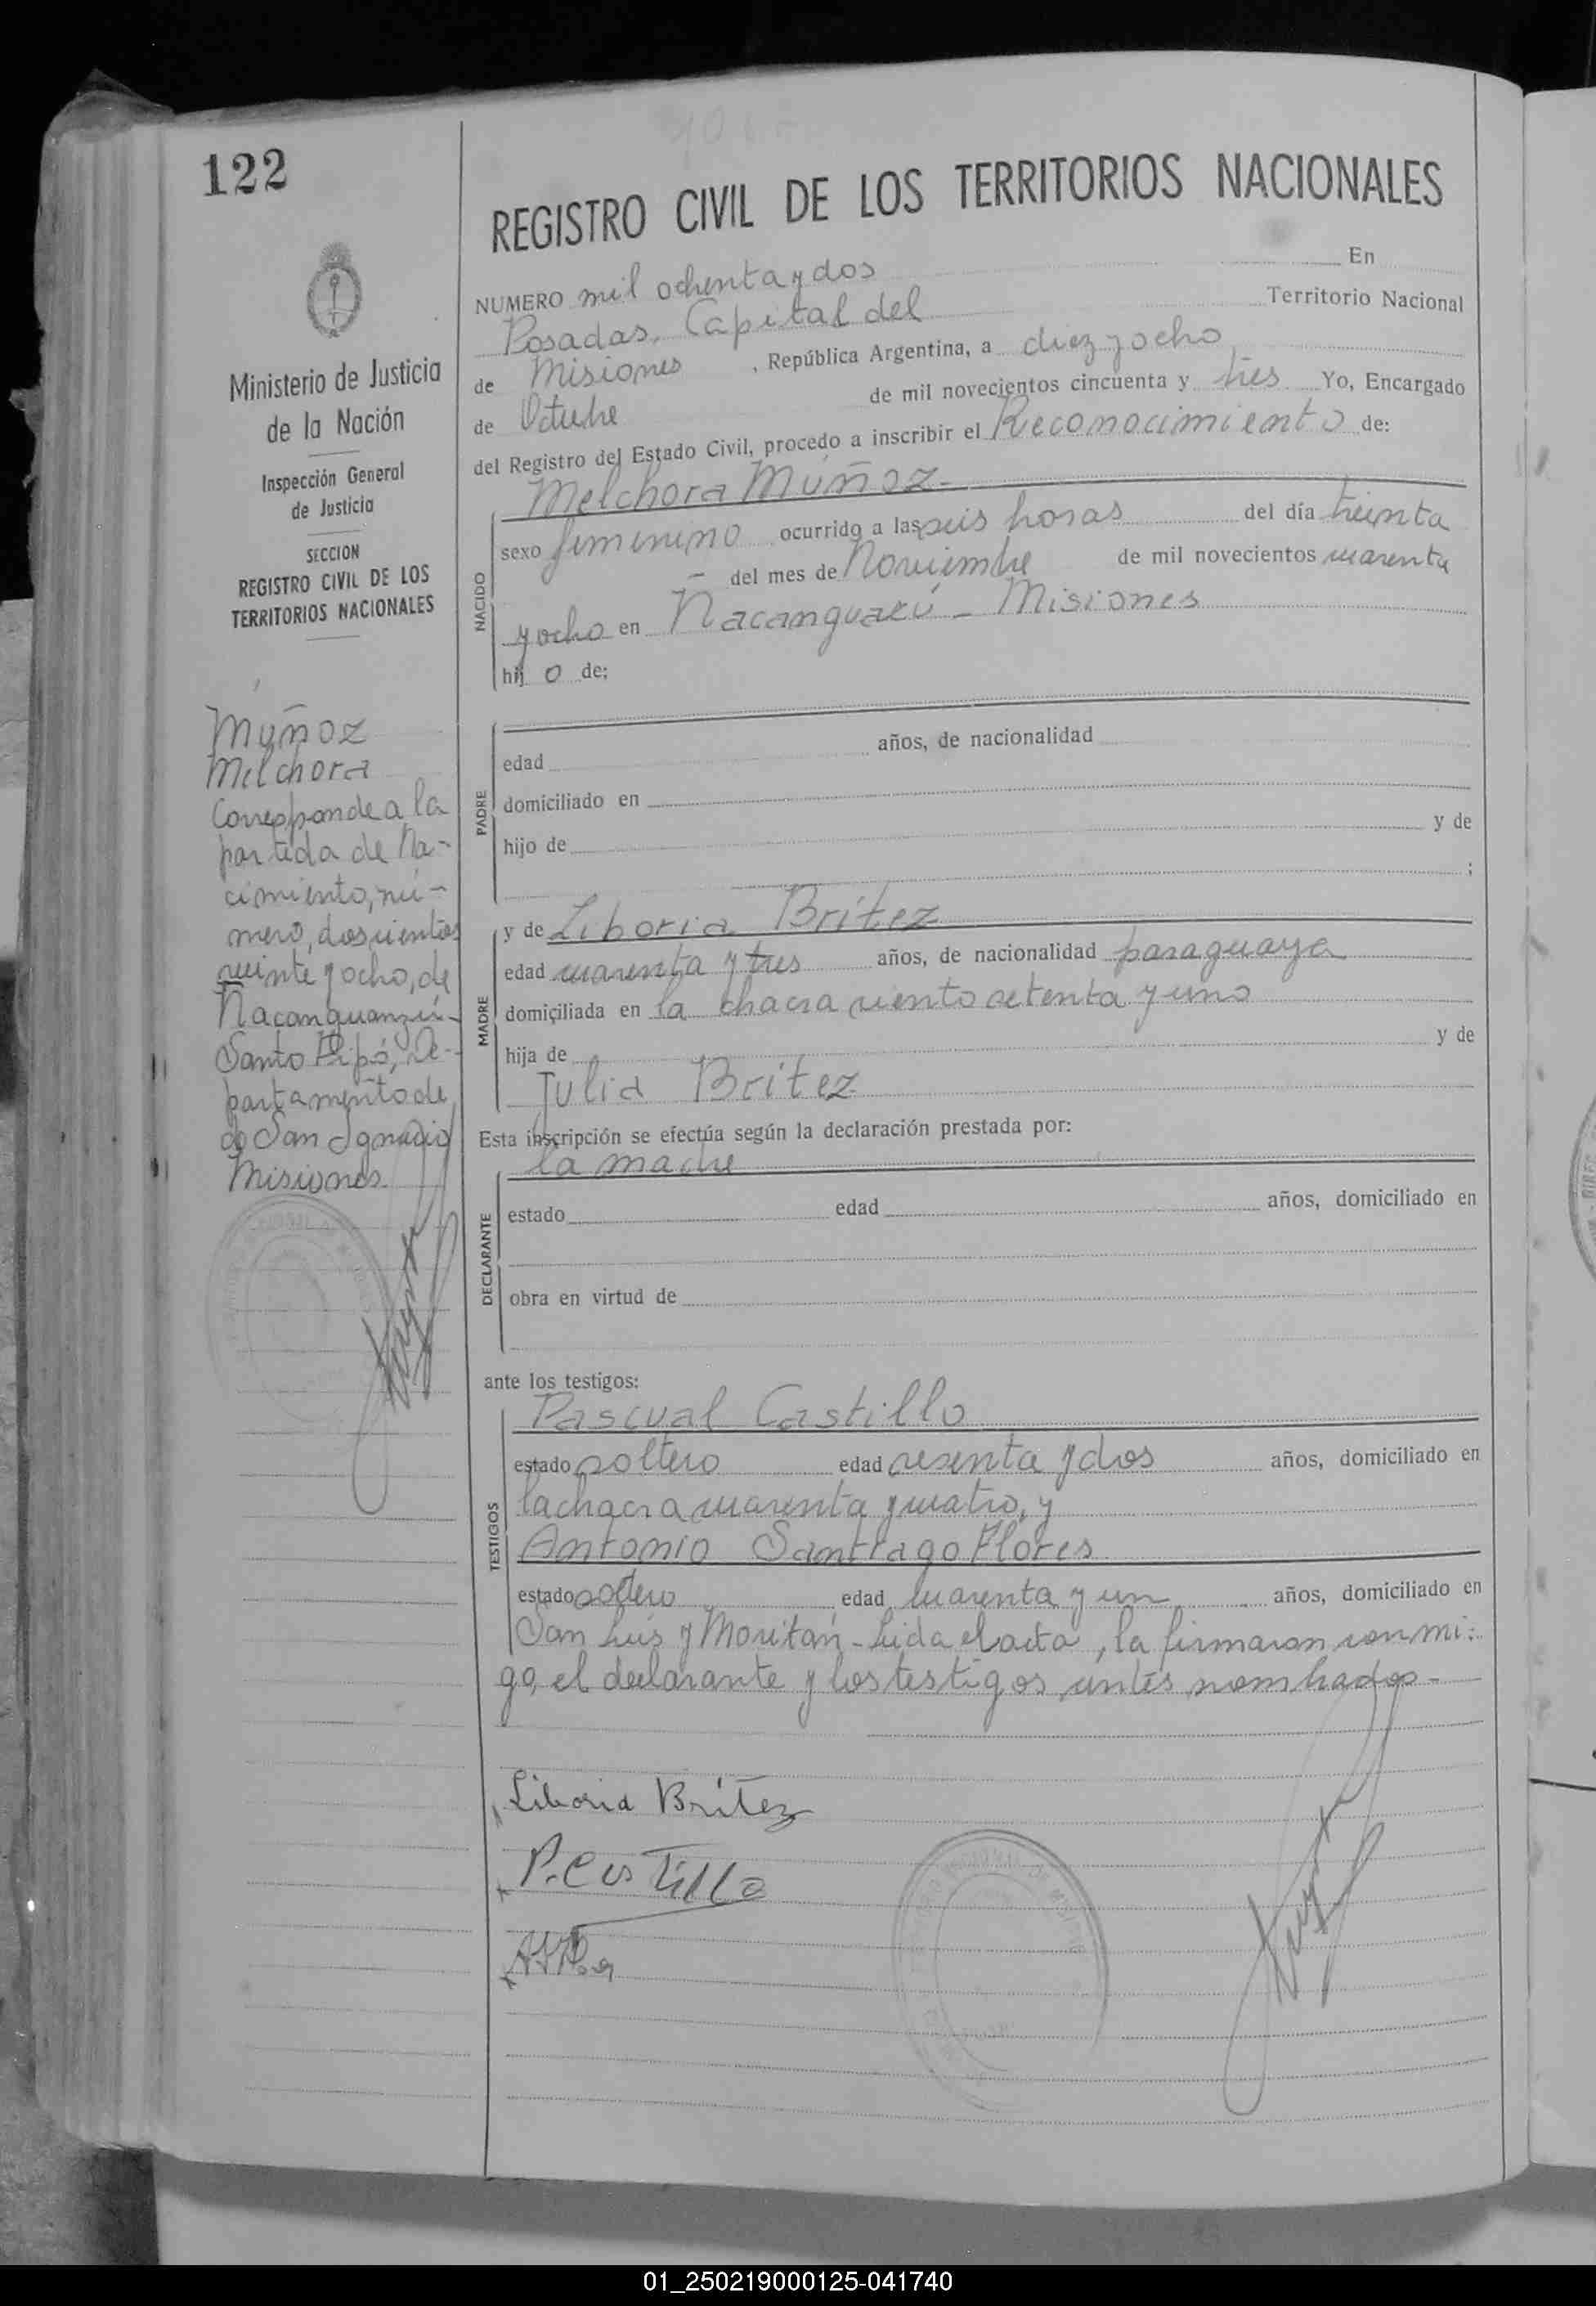 122
REGISTRO CIVIL DE LOS TERRITORIOS NACIONALES
Ministerio de Justicia
de la Nación
Inspección General
de Justicia
SECCION
REGISTRO CIVIL DE LOS
TERRITORIOS NACIONALES
Muñoz
Melchora
Corresponde a la
partida de Na-
cimiento, nú-
mero, doscientos
veinte y ocho, de
Ñacanguanzú-
Santo Pipó, De-
partamento de
de San Ignacio
Misiones.
NUMERO mil ochenta y dos En
Posadas, Capital del Territorio Nacional
de Misiones, República Argentina, a diez y ocho
de Octubre de mil novecientos cincuenta y tres Yo, Encargado
del Registro del Estado Civil, procedo a inscribir el Reconocimiento de:
Melchora Muñoz-
NACIDO
sexo femenino ocurrido a las seis horas del día treinta
- del mes de Noviembre de mil novecientos cuarenta
y ocho en Ñacanguazú - Misiones
hij o de:
PADRE
edad años, de nacionalidad
domiciliado en
hijo de y de
;
MADRE
y de Liboria Brítez
edad cuarenta y tres años, de nacionalidad paraguaya
domiciliada en la chacra ciento setenta y uno
hija de y de
Julia Brítez
Esta inscripción se efectúa según la declaración prestada por:
la madre
DECLARANTE
estado edad años, domiciliado en
obra en virtud de
ante los testigos:
TESTIGOS
Pascual Castillo
estado soltero edad sesenta y dos años, domiciliado en
la chacra cuarenta y cuatro, y
Antonio Santiago Flores
estado soltero edad cuarenta y un años, domiciliado en
San Luís y Moritán - Leída el acta, la firmaron conmi-
go, el declarante y los testigos antes nombrados-
Liboria Britez
P. Castillo
01_250219000125-041740